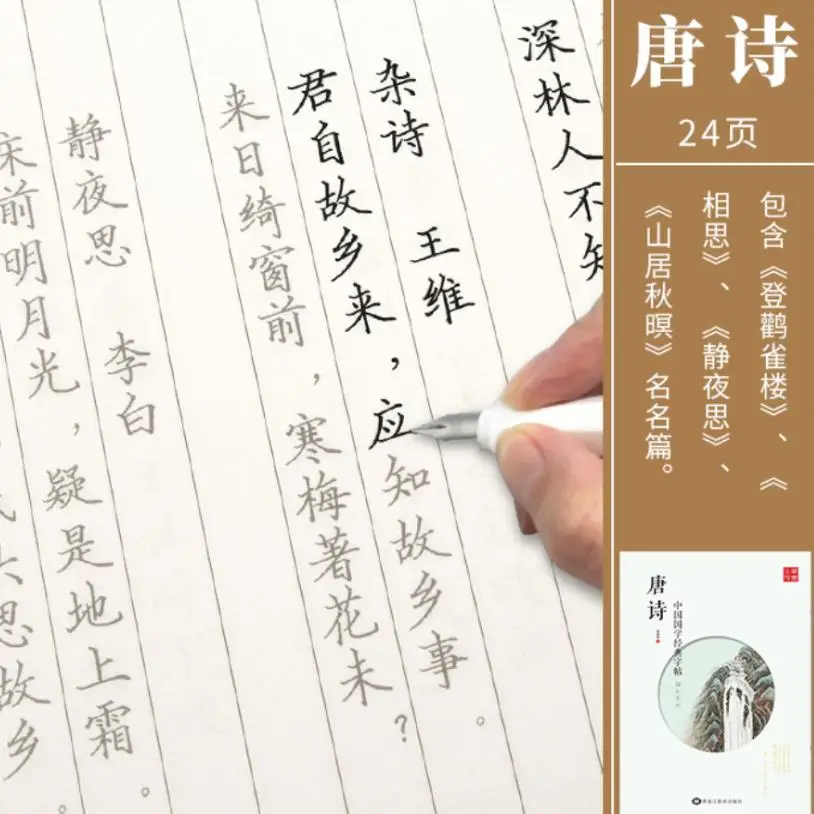 深林人不知
杂诗 王维
君自故乡来，应知故乡事。
来日绮窗前，寒梅著花未？
静夜思 李白
床前明月光，疑是地上霜。
思故乡。
唐诗
24页
包含《登鹳雀楼》、《
相思》、《静夜思》、
《山居秋暝》名名篇。
唐诗
中国国学经典字帖
黑龙江美术出版社